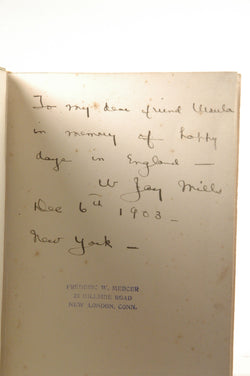 For my dear friend Ursula
in memory of happy
days in England —
W Jay Mills
Dec 6th 1903 —
New York —
FREDERIC W. MERCER
HILLSIDE ROAD
NEW LONDON, CONN.